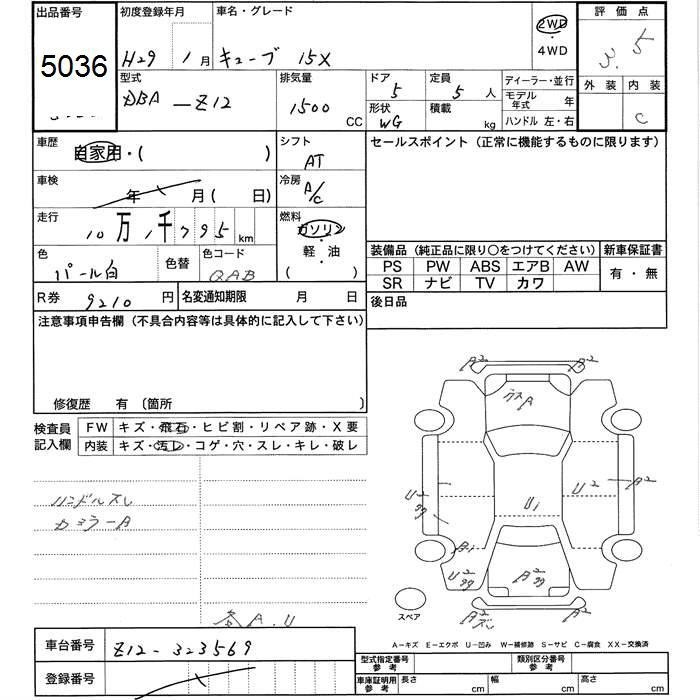 出品番号
5036
初度登録年月
H29 1月
車名・グレード
キューブ 15X
2WD
・
4WD
評価点
3.5
外装 内装
C
型式
DBA-Z12
排気量
1500 CC
ドア
5
定員
5 人
形状
WG
積載
kg
ディーラー・並行
モデル年式 年
ハンドル 左・右
車歴
自家用・( )
シフト
AT
車検
年 月( 日)
冷房
A/C
走行
10万1千795km
燃料
ガソリン
・
軽・油
( )
色
パール白
色替
色コード
QAB
R券 9210円
名変通知期限 月 日
セールスポイント(正常に機能するものに限ります)
装備品(純正品に限り○をつけてください)
PS PW ABS エアB AW
SR ナビ TV カワ
新車保証書
有・無
後日品
注意事項申告欄(不具合内容等は具体的に記入して下さい)
修復歴 有 (箇所 )
検査員記入欄
FW キズ・飛石・ヒビ割・リペア跡・X要
内装 キズ・汚レ・コゲ・穴・スレ・キレ・破レ
ハンドルスレ
カミラーA
各A.U
A2 A2
ガラスA
U2 A2
U2
gg
U1
B1
U2
gg
A2
gg
A2 A2
ズレ
スペア
A-キズ E-エクボ U-凹み W-補修跡 S-サビ C-腐食 XX-交換済
車台番号 Z12-323569
登録番号
型式指定番号
参考
類別区分番号
参考
車庫証明用
参考
長さ cm 幅 cm 高さ cm